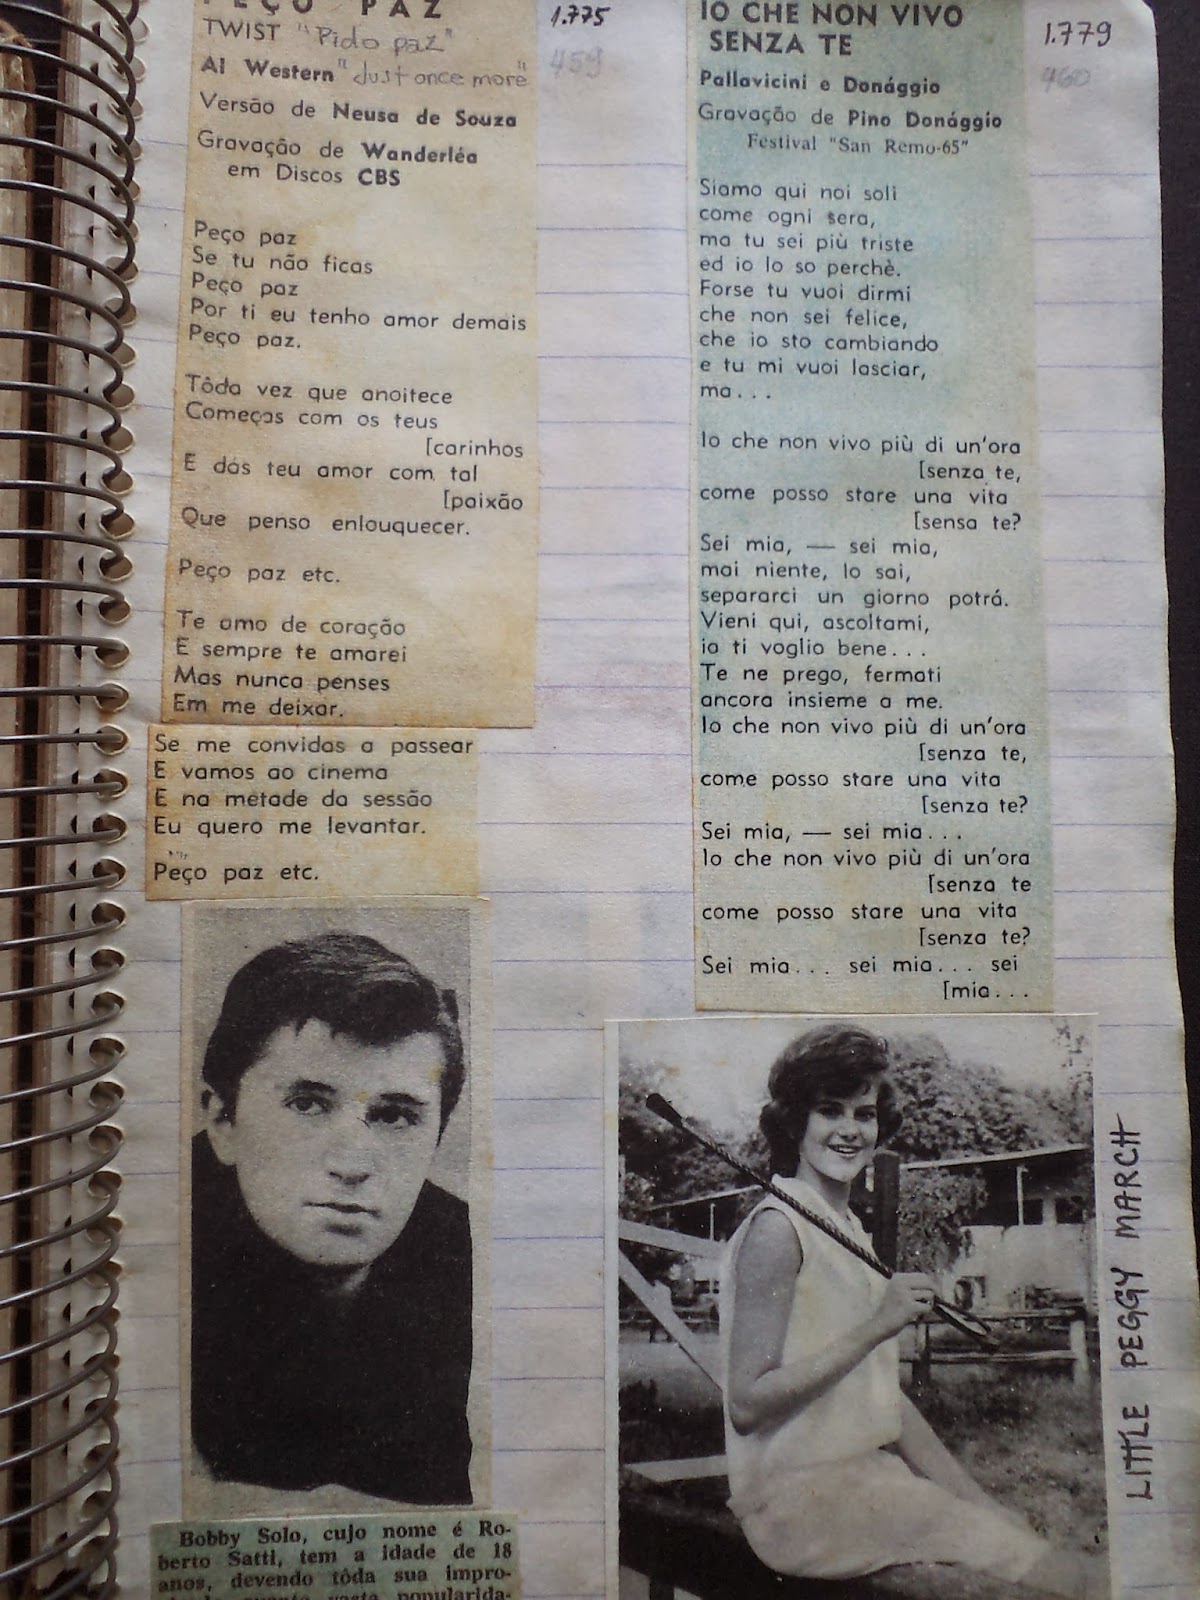 PEÇO PAZ
TWIST "Pido paz"
Al Western "Just once more"
Versão de Neusa de Souza
Gravação de Wanderléa
em Discos CBS
Peço paz
Se tu não ficas
Peço paz
Por ti eu tenho amor demais
Peço paz.
Tôda vez que anoitece
Começas com os teus
[carinhos
E dás teu amor com tal
[paixão
Que penso enlouquecer.
Peço paz etc.
Te amo de coração
E sempre te amarei
Mas nunca penses
Em me deixar.
Se me convidas a passear
E vamos ao cinema
E na metade da sessão
Eu quero me levantar.
Peço paz etc.
Bobby Solo, cujo nome é Ro-
berto Satti, tem a idade de 18
anos, devendo tôda sua impro-
vasta popularida-
1.775
459
IO CHE NON VIVO
SENZA TE
Pallavicini e Donággio
Gravação de Pino Donággio
Festival "San Remo-65"
Siamo qui noi soli
come ogni sera,
ma tu sei più triste
ed io lo so perchè.
Forse tu vuoi dirmi
che non sei felice,
che io sto cambiando
e tu mi vuoi lasciar,
ma...
Io che non vivo più di un'ora
[senza te,
come posso stare una vita
[sensa te?
Sei mia, — sei mia,
mai niente, lo sai,
separarci un giorno potrá.
Vieni qui, ascoltami,
io ti voglio bene...
Te ne prego, fermati
ancora insieme a me.
Io che non vivo più di un'ora
[senza te,
come posso stare una vita
[senza te?
Sei mia, — sei mia...
Io che non vivo più di un'ora
[senza te
come posso stare una vita
[senza te?
Sei mia... sei mia... sei
[mia...
1.779
460
LITTLE PEGGY MARCH